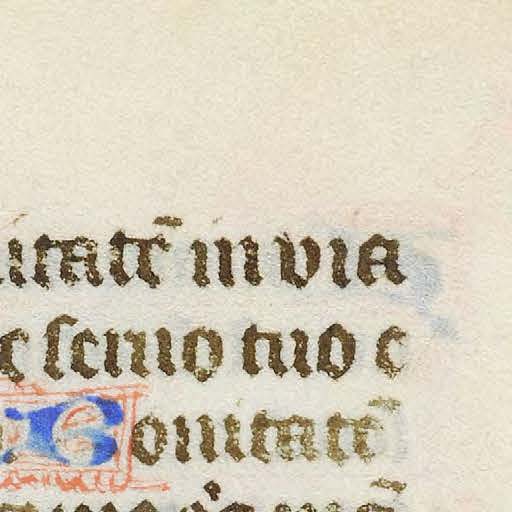 uitatē in via
c seruo tuo c
Bonitatē